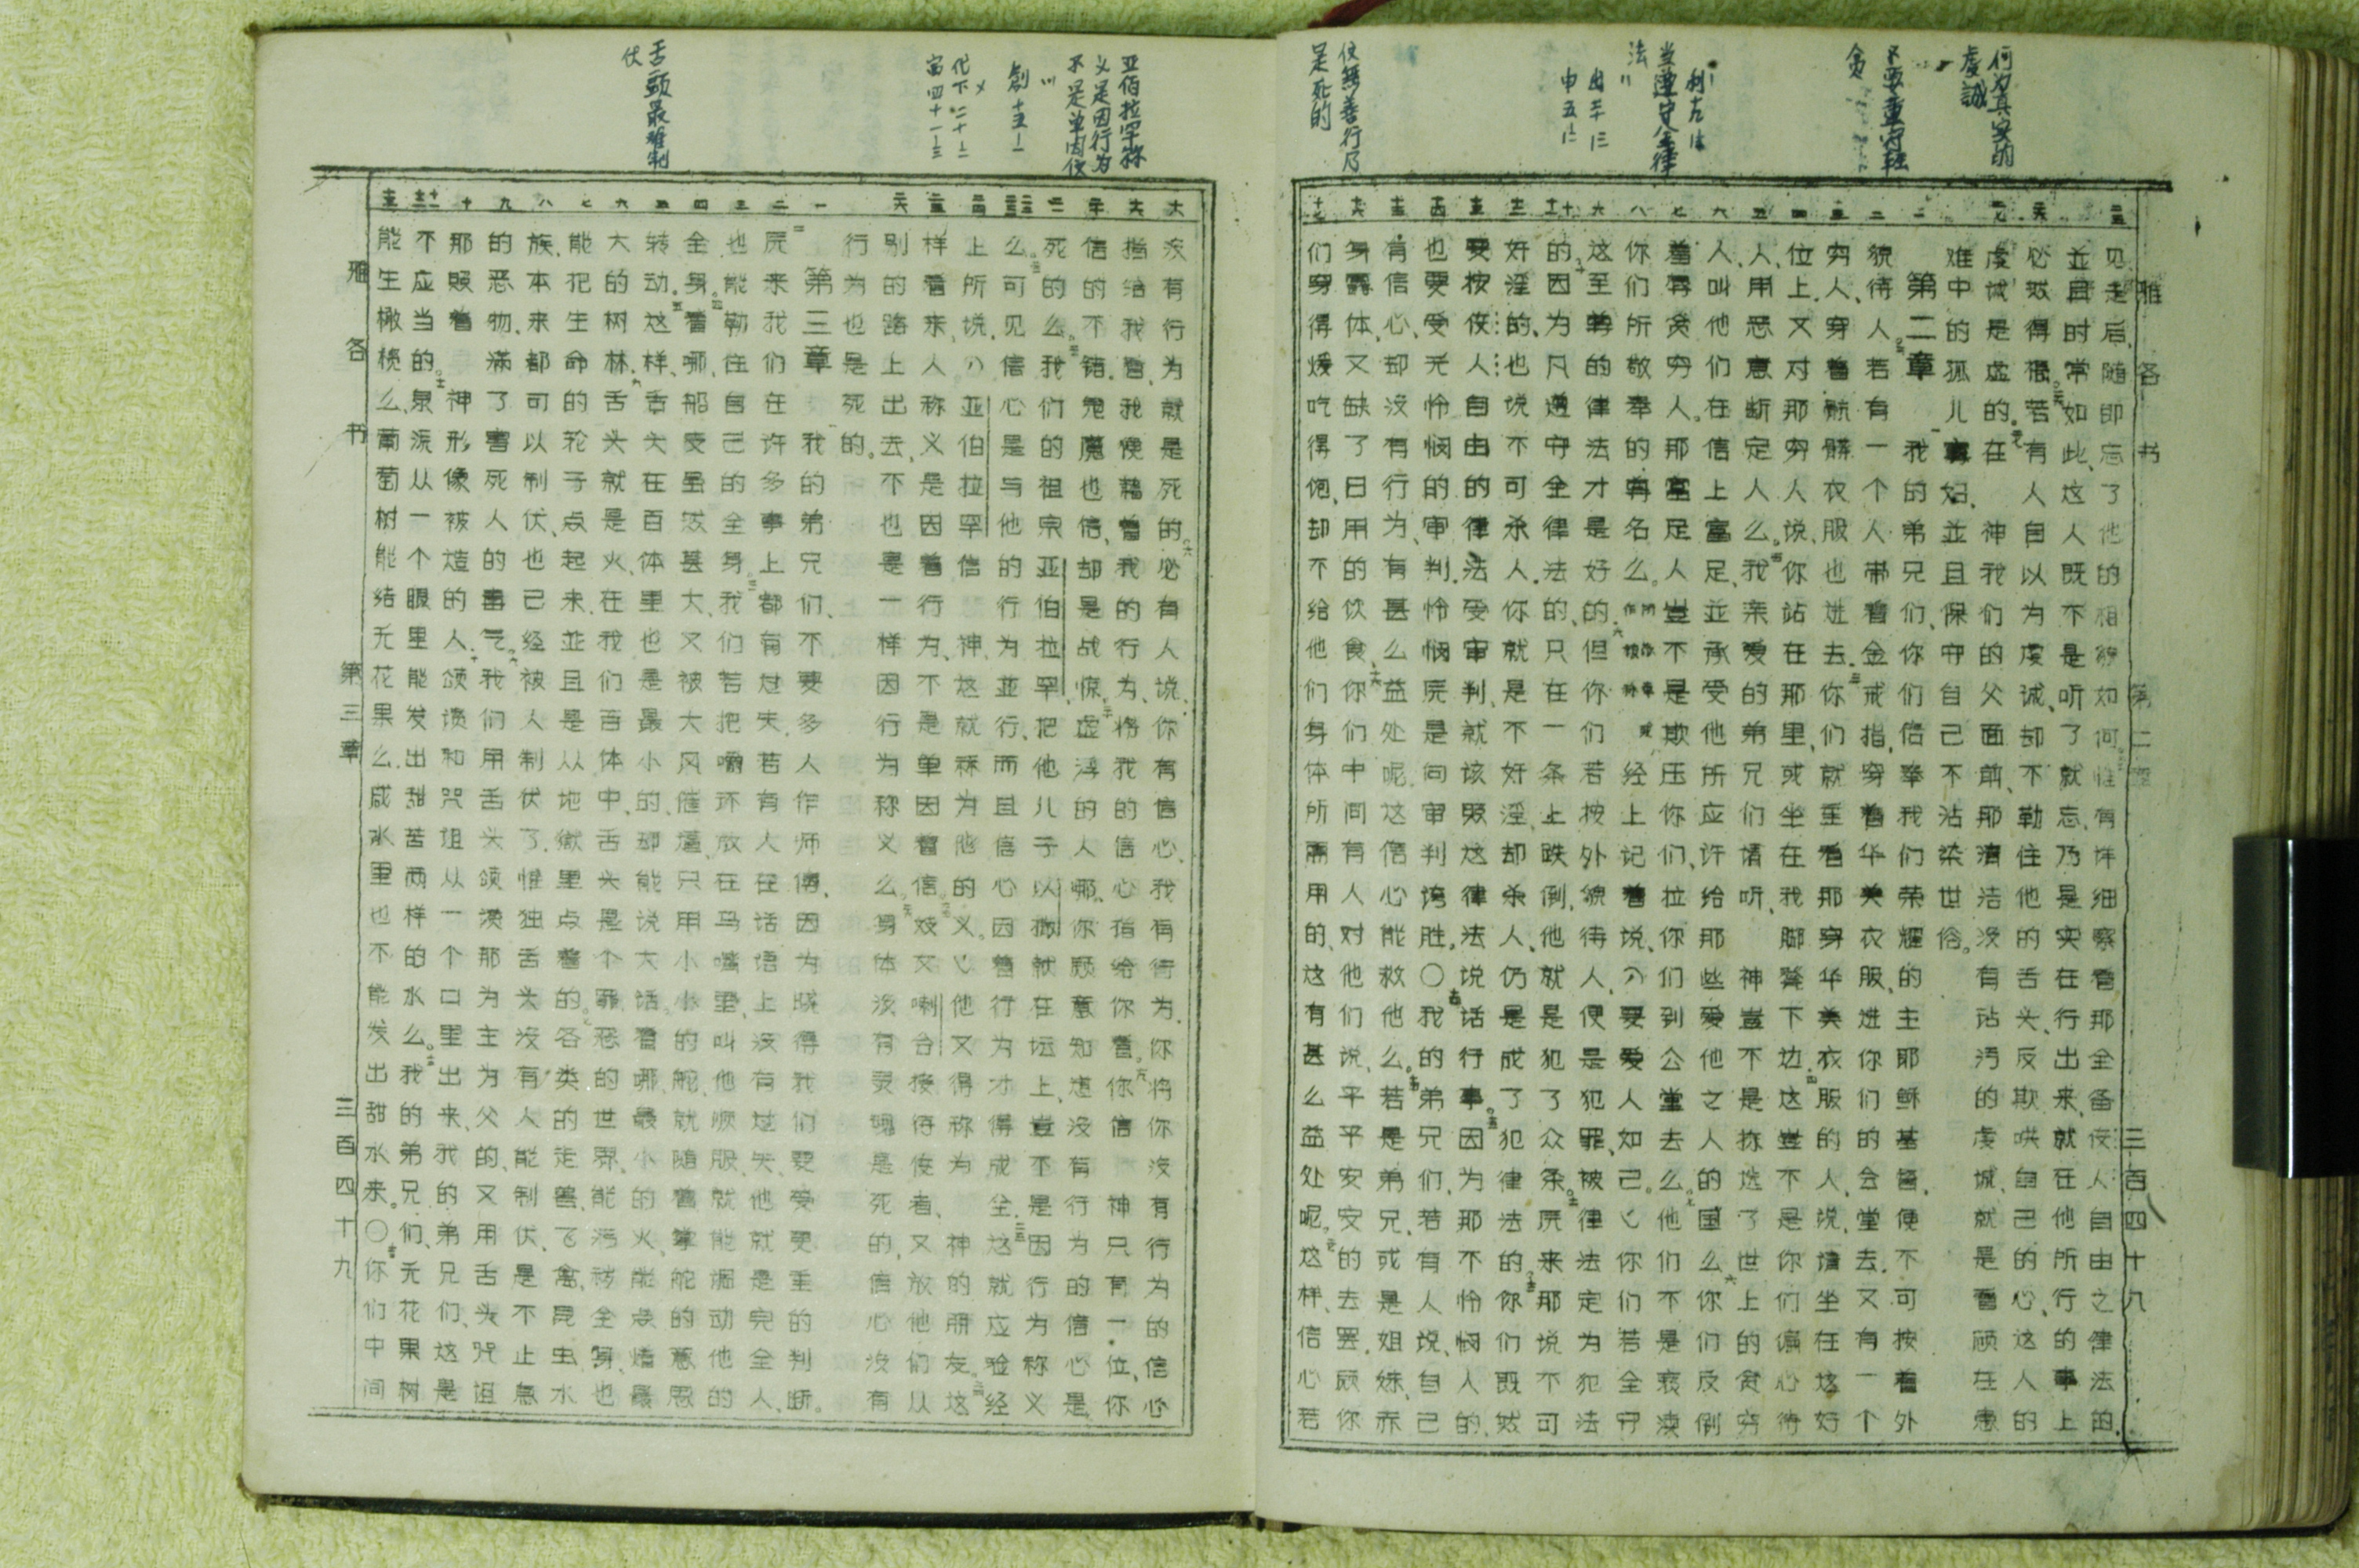 何为真实的
虔誠
不要重富輕
貧
利九
当遵守全律
法
出二十
申五
使無善行乃
是死的
雅各书　第二章　三百四十九
见、走后、随即忘了他的相貌如何。惟有详细察看那全备使人自由之律法的、
並且时常如此、这人既不是听了就忘、乃是实在行出来、就在他所行的事上
必然得福。若有人自以为虔诚、却不勒住他的舌头、反欺哄自己的心、这人的
虔诚是虚的。在　神我们的父面前、那清洁没有玷污的虔诚、就是看顾在患
难中的孤儿寡妇、並且保守自己不沾染世俗。
第二章　我的弟兄们、你们信奉我们荣耀的主耶稣基督、便不可按着外
貌待人。若有一个人带着金戒指、穿着华美衣服、进你们的会堂去、又有一个
穷人、穿着骯髒衣服也进去。你们就重看那穿华美衣服的人、说、请坐在这好
位上、又对那穷人说、你站在那里、或坐在我脚凳下边。这岂不是你们偏心待
人、用恶意断定人么。我亲爱的弟兄们请听、　神岂不是拣选了世上的贫穷
人、叫他们在信上富足、並承受他所应许给那些爱他之人的国么。你们反倒
羞辱贫穷人。那富足人岂不是欺压你们、拉你们到公堂去么。他们不是亵渎
你们所敬奉的尊名么。经上记着说、「要爱人如己。」你们若全守
这至尊的律法才是好的、但你们若按外貌待人、便是犯罪、被律法定为犯法
的。因为凡遵守全律法的、只在一条上跌倒、他就是犯了众条。原来那说不可
奸淫的、也说不可杀人、你就是不奸淫、却杀人、仍是成了犯律法的。你们既然
要按使人自由的律法受审判、就该照这律法说话行事。因为那不怜悯人的、
也要受无怜悯的审判、怜悯原是向审判誇胜。〇我的弟兄们、若有人说、自己
有信心、却没有行为、有甚么益处呢、这信心能救他么。若是弟兄、或是姐妹、赤
身露体、又缺了日用的饮食、你们中间有人对他们说、平平安安的去罢、愿你
们穿得煖吃得饱、却不给他们身体所需用的、这有甚么益处呢。这样、信心若
亚伯拉罕称
义是因行为
不是单因信
創十五
代下二十
富四十一
舌頭最难制
伏
没有行为就是死的。必有人说、你有信心、我有行为、你将你没有行为的信心
指给我看、我便藉着我的行为、将我的信心指给你看。你信　神只有一位、你
信的不错。鬼魔也信、却是战惊。虚浮的人哪、你愿意知道没有行为的信心是
死的么。我们的祖宗亚伯拉罕、把他儿子以撒献在坛上、岂不是因行为称义
么。可见信心是与他的行为並行、而且信心因着行为才得成全。这就应验经
上所说、「亚伯拉罕信　神、这就称为他的义。」他又得称为　神的朋友。这
样看来、人称义是因着行为、不是单因着信。妓女喇合接待使者、又放他们从
别的路上出去、不也是一样因行为称义么。身体没有灵魂是死的、信心没有
行为也是死的。
第三章　我的弟兄们、不要多人作师傅、因为晓得我们要受更重的判断。
原来我们在许多事上都有过失、若有人在话语上没有过失、他就是完全人、
也能勒住自己的全身。我们若把嚼环放在马嘴里、叫他顺服、就能调动他的
全身。看哪、船隻虽然甚大、又被大风催逼、只用小小的舵、就随着掌舵的意思
转动。这样、舌头在百体里也是最小的、却能说大话。看哪、最小的火、能点着最
大的树林。舌头就是火、在我们百体中、舌头是个罪恶的世界、能污秽全身、也
能把生命的轮子点起来、並且是从地狱里点着的。各类的走兽、飞禽、昆虫、水
族、本来都可以制伏、也已经被人制伏了、惟独舌头没有人能制伏、是不止息
的恶物、满了害死人的毒气。我们用舌头颂讚那为主为父的、又用舌头咒诅
那照着　神形像被造的人、颂讚和咒诅从一个口里出来、我的弟兄们、这是
不应当的。泉源从一个眼里能发出甜苦两样的水么。我的弟兄们、无花果树
能生橄榄么、葡萄树能结无花果么。咸水里也不能发出甜水来。〇你们中间
雅各书　第三章　三百四十九